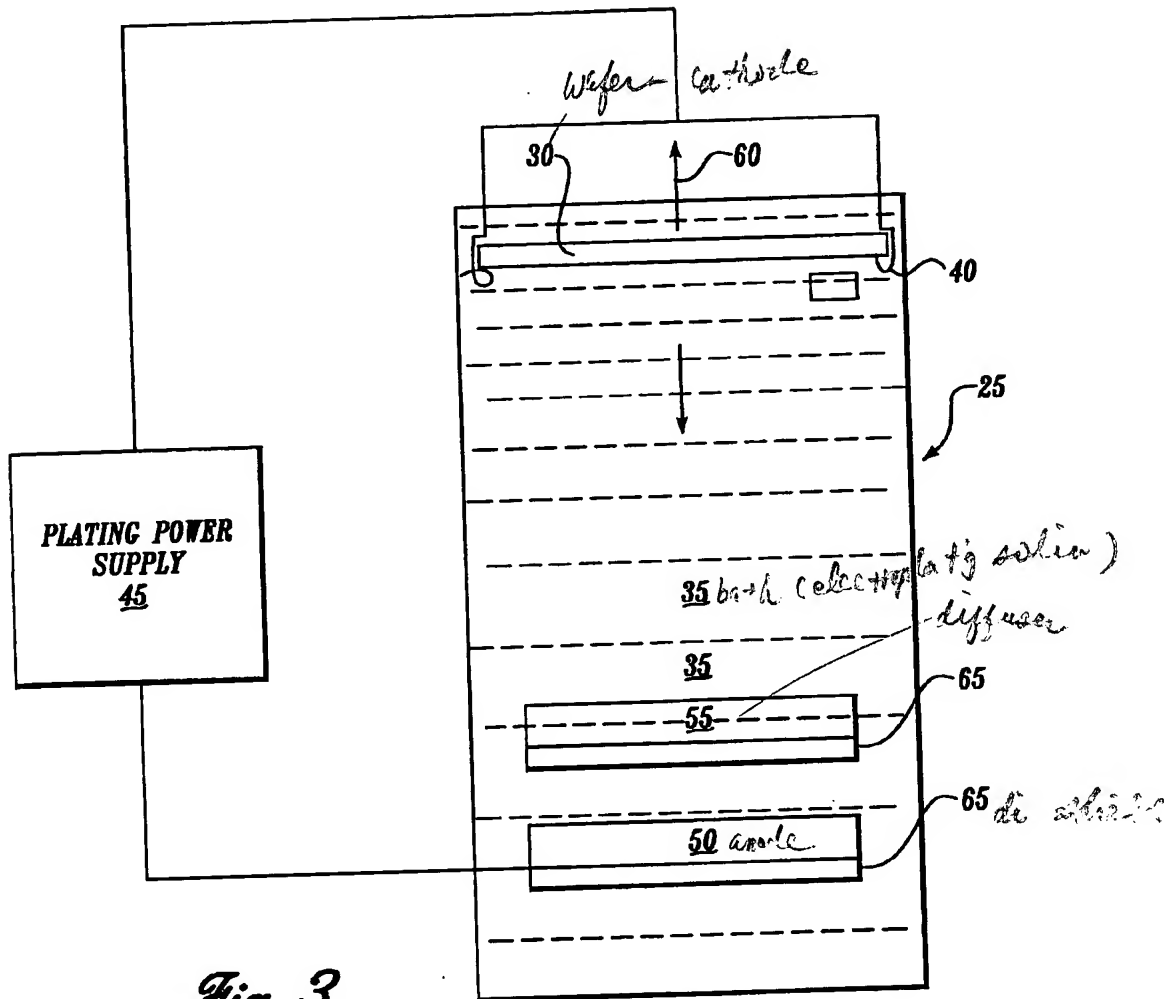 Wafer - cathode
30
60
40
25
PLATING POWER
SUPPLY
45
35 bath (electroplat'g sol'n)
diffuser
35
65
55
65
50 anode
Fig. 3